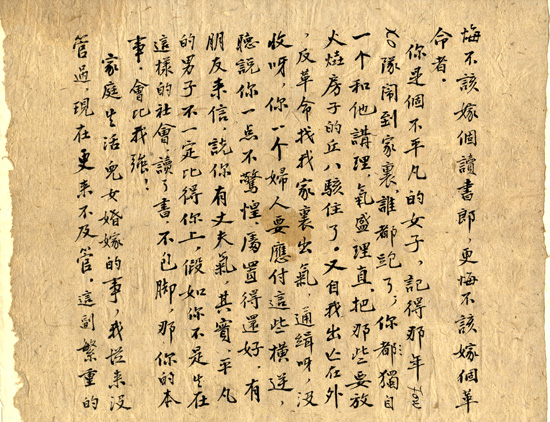 悔不該嫁個讀書郎,更悔不該嫁個革
命者。
你是個不平凡的女子,記得那年
隊鬧到家裏、誰都跑了,你都獨自
一個和他講理,氣盛理直、把那些要放
火燒房子的丘八駭住了。又自我出亡在外
,反革命找我家裏出氣,通緝呀,沒
收呀,你一個婦人要應付這些橫逆,
聽說你一点不驚惶,處置得還好。有
朋友来信,說你有丈夫氣,其實,平凡
的男子不一定比得你上,假如你不是生在
這樣的社會,讀了書,不包脚,那你的本
事,會比我強?
家庭生活兒女婚嫁的事,我從来沒
管過,現在更来不及管。這副繁重的